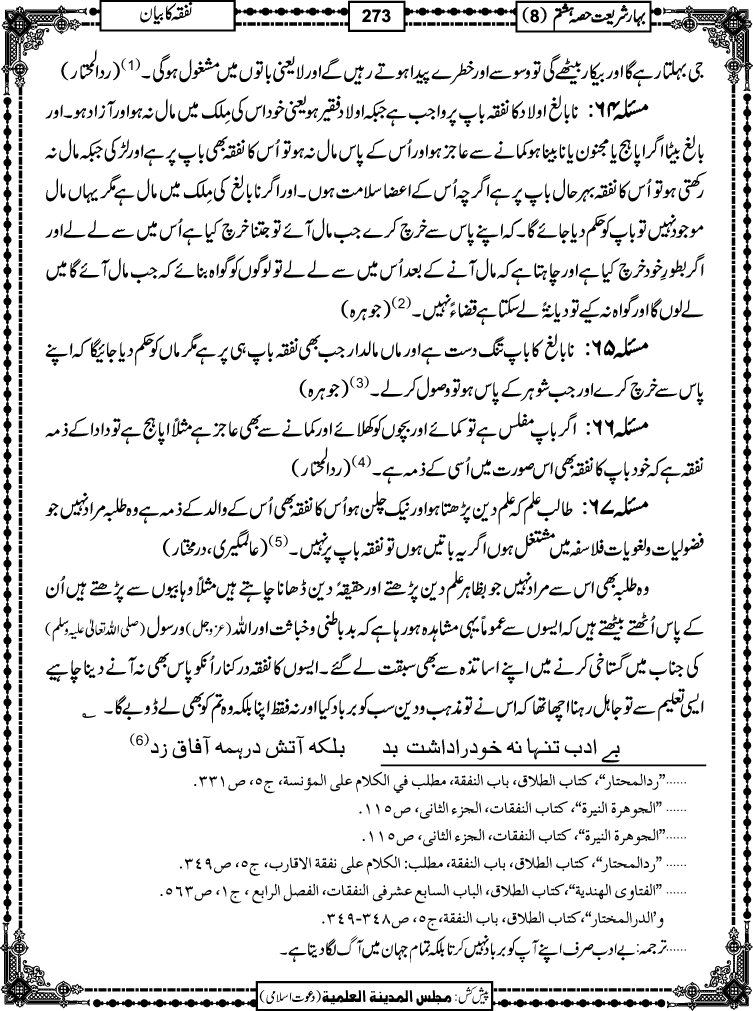 بہارِ شریعت حصہ ہشتم (8)
273
نفقہ کا بیان
جی بہلتا رہے گا اور بیکار بیٹھے گی تو وسوسے اور خطرے پیدا ہوتے رہیں گے اور لایعنی باتوں میں مشغول ہوگی۔(1) (ردالمحتار)
مسئلہ ۶۴: نابالغ اولاد کا نفقہ باپ پر واجب ہے جبکہ اولاد فقیر ہو یعنی خود اس کی مِلک میں مال نہ ہو اور آزاد ہو۔ اور
بالغ بیٹا اگر اپاہج یا مجنون یا نابینا ہو کمانے سے عاجز ہو اور اُس کے پاس مال نہ ہو تو اُس کا نفقہ بھی باپ پر ہے اور لڑکی جبکہ مال نہ
رکھتی ہو تو اُس کا نفقہ بہرحال باپ پر ہے اگرچہ اُس کے اعضا سلامت ہوں۔ اور اگر نابالغ کی مِلک میں مال ہے مگر یہاں مال
موجود نہیں تو باپ کو حکم دیا جائے گا۔ کہ اپنے پاس سے خرچ کرے جب مال آئے تو جتنا خرچ کیا ہے اُس میں سے لے لے اور
اگر بطورِ خود خرچ کیا ہے اور چاہتا ہے کہ مال آنے کے بعد اُس میں سے لے لے تو لوگوں کو گواہ بنائے کہ جب مال آئے گا میں
لے لوں گا اور گواہ نہ کیے تو دیانۃً لے سکتا ہے قضاءً نہیں۔(2) (جوہرہ)
مسئلہ ۶۵: نابالغ کا باپ تنگ دست ہے اور ماں مالدار جب بھی نفقہ باپ ہی پر ہے مگر ماں کو حکم دیا جائیگا کہ اپنے
پاس سے خرچ کرے اور جب شوہر کے پاس ہو تو وصول کرلے۔(3) (جوہرہ)
مسئلہ ۶۶: اگر باپ مفلس ہے تو کمائے اور بچوں کو کھلائے اور کمانے سے بھی عاجز ہے مثلاً اپاہج ہے تو دادا کے ذمہ
نفقہ ہے کہ خود باپ کا نفقہ بھی اس صورت میں اُسی کے ذمہ ہے۔(4) (ردالمحتار)
مسئلہ ۶۷: طالب علم کہ علم دین پڑھتا ہو اور نیک چلن ہو اُس کا نفقہ بھی اُس کے والد کے ذمہ ہے وہ طلبہ مراد نہیں جو
فضولیات و لغویات فلاسفہ میں مشتغل ہوں اگر یہ باتیں ہوں تو نفقہ باپ پر نہیں۔(5) (عالمگیری، درمختار)
وہ طلبہ بھی اس سے مراد نہیں جو بظاہر علم دین پڑھتے اور حقیقۃً دین ڈھانا چاہتے ہیں مثلاً وہابیوں سے پڑھتے ہیں اُن
کے پاس اُٹھتے بیٹھتے ہیں کہ ایسوں سے عموماً یہی مشاہدہ ہو رہا ہے کہ بد باطنی و خباثت اور اللہ (عزوجل) و رسول (صلی اللہ تعالیٰ علیہ وسلم)
کی جناب میں گستاخی کرنے میں اپنے اساتذہ سے بھی سبقت لے گئے۔ ایسوں کا نفقہ درکنار اُنکو پاس بھی نہ آنے دینا چاہیے
ایسی تعلیم سے تو جاہل رہنا اچھا تھا کہ اس نے تو مذہب و دین سب کو برباد کیا اور نہ فقط اپنا بلکہ وہ تم کو بھی لے ڈوبے گا۔ ؎
بے ادب تنہا نہ خود راداشت بد بلکہ آتش درہمہ آفاق زد(6)
......"ردالمحتار"، کتاب الطلاق، باب النفقة، مطلب في الکلام علی المؤنسة، ج٥، ص٣٣١.
......"الجوهرة النيرة"، کتاب النفقات، الجزء الثانی، ص١١٥.
......"الجوهرة النيرة"، کتاب النفقات، الجزء الثانی، ص١١٥.
......"ردالمحتار"، کتاب الطلاق، باب النفقة، مطلب: الکلام علی نفقة الاقارب، ج٥، ص٣٤٩.
......"الفتاوی الهندية"، کتاب الطلاق، الباب السابع عشرفی النفقات، الفصل الرابع، ج١، ص٥٦٣.
و"الدرالمختار"، کتاب الطلاق، باب النفقة، ج٥، ص٣٤٨-٣٤٩.
......ترجمہ: بے ادب صرف اپنے آپ کو برباد نہیں کرتا بلکہ تمام جہان میں آگ لگا دیتا ہے۔
پیش کش: مجلس المدینة العلمیة (دعوت اسلامی)